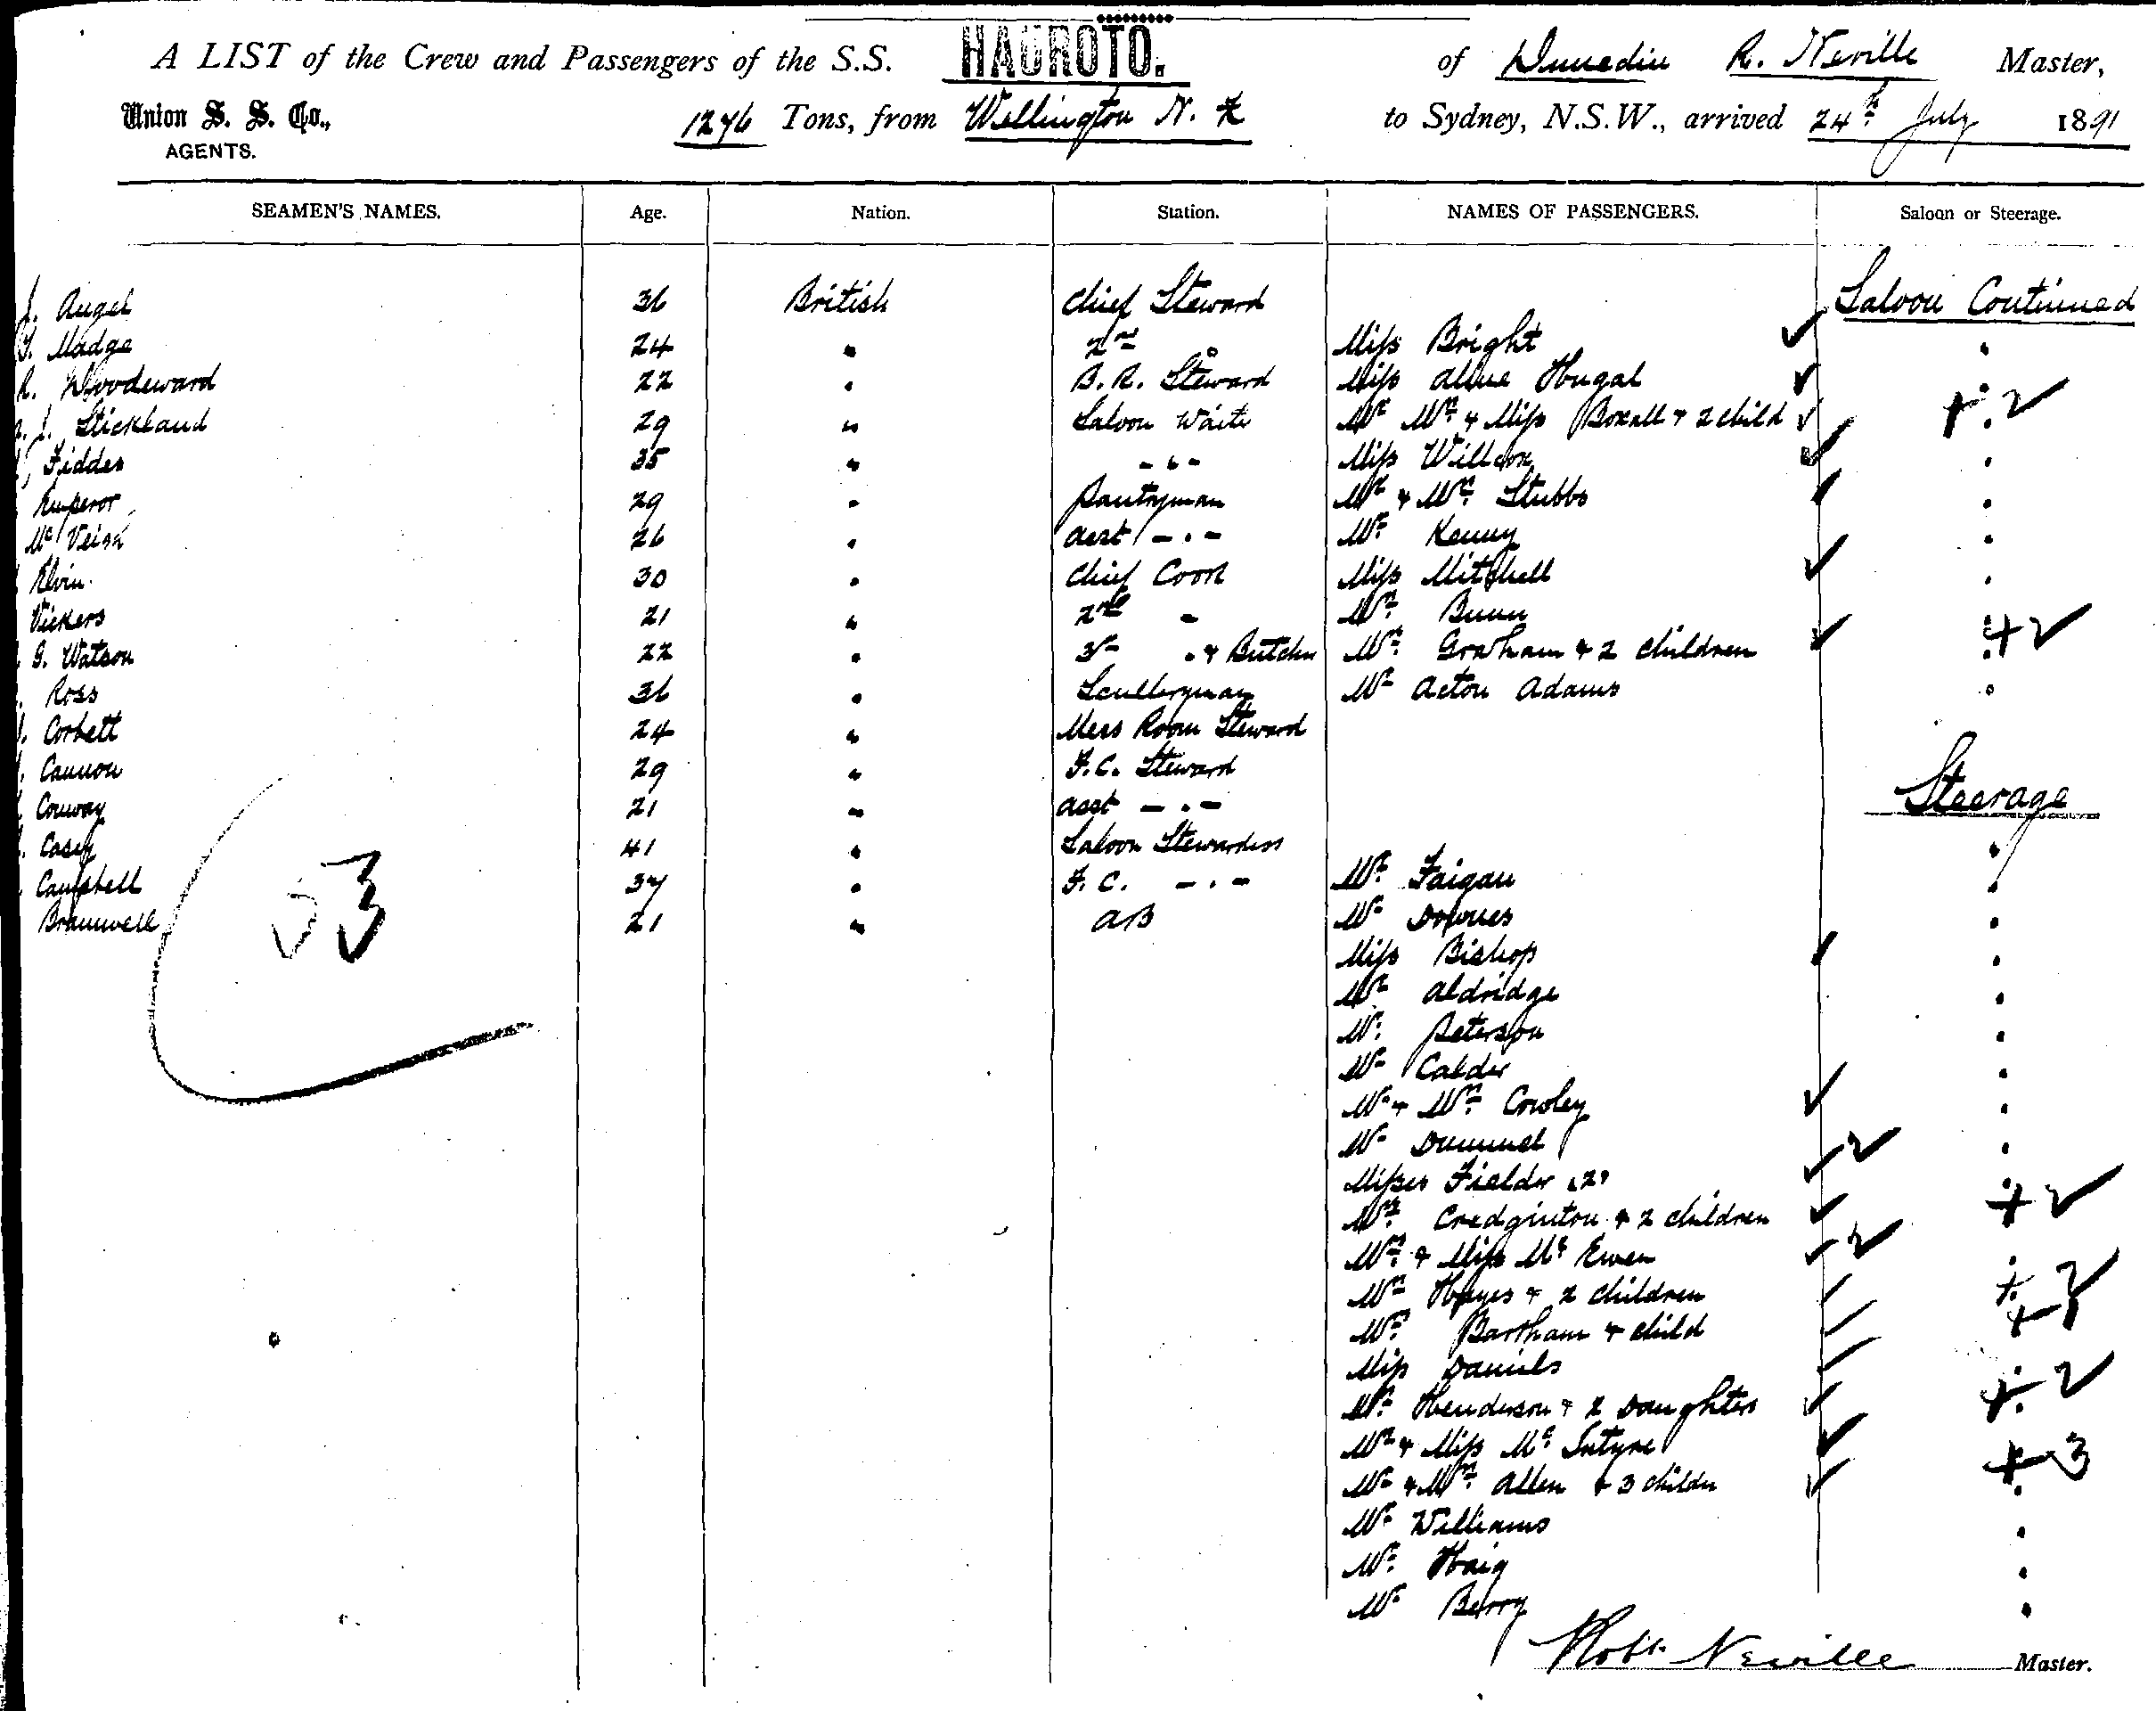 A LIST of the Crew and Passengers of the S.S. HAUROTO. of Dunedin R. Neville Master,
Union S. S. Co., 1276 Tons, from Wellington N. Z to Sydney, N.S.W., arrived 24th July 1891
AGENTS.
SEAMEN'S NAMES. Age. Nation. Station. NAMES OF PASSENGERS. Saloon or Steerage.
J. Angel 36 British Chief Steward Saloon Continued
Madge 24 " 2nd " Miss Bright "
R. Woodeward 22 " B. R. Steward Miss Hugal "
J. Stickland 29 " Saloon Waiter Mr Mrs & Miss Boxall & 2 child " + 2
Fiddes 35 " - " - Miss Willcox "
Emperor 29 " Pantryman Mr & Mrs Stubbs "
Mc Veigh 26 " Asst - " - Mr Kenny "
Elvin 30 " Chief Cook Miss Mitchell "
Vickers 21 " 2nd - Mr Bunn "
G. Watson 22 " 3rd " & Butcher Mrs Graham & 2 children " + 2
Ross 36 " Sculleryman Mr Acton Adams "
Corbett 24 " Mess Room Steward
Cannon 29 " F.C. Steward
Conway 21 " Asst - " - Steerage
Casey 41 " Saloon Stewardess "
Campbell 37 " F. C. - " - Mr Faigan "
Bramwell 21 " AB Mr Downes "
53
Miss Bishop "
Mr Aldridge "
Mr Peterson "
Mr Calder "
Mr & Mrs Cowley "
Mr "
Misses Fielder (2) 2 "
Mrs Credginton & 2 children + 2
Mrs & Miss Mc Ewen 2 "
Mrs Hayes & 2 children + 2
Mrs Bartham & child + 1
Miss Daniels
Mr Henderson & 2 Daughters + 2
Mr & Miss Mc Intyre "
Mr & Mrs Allen & 3 childn + 3
Mr Williams "
Mr Haig "
Mr Berry "
Robt Neville Master.